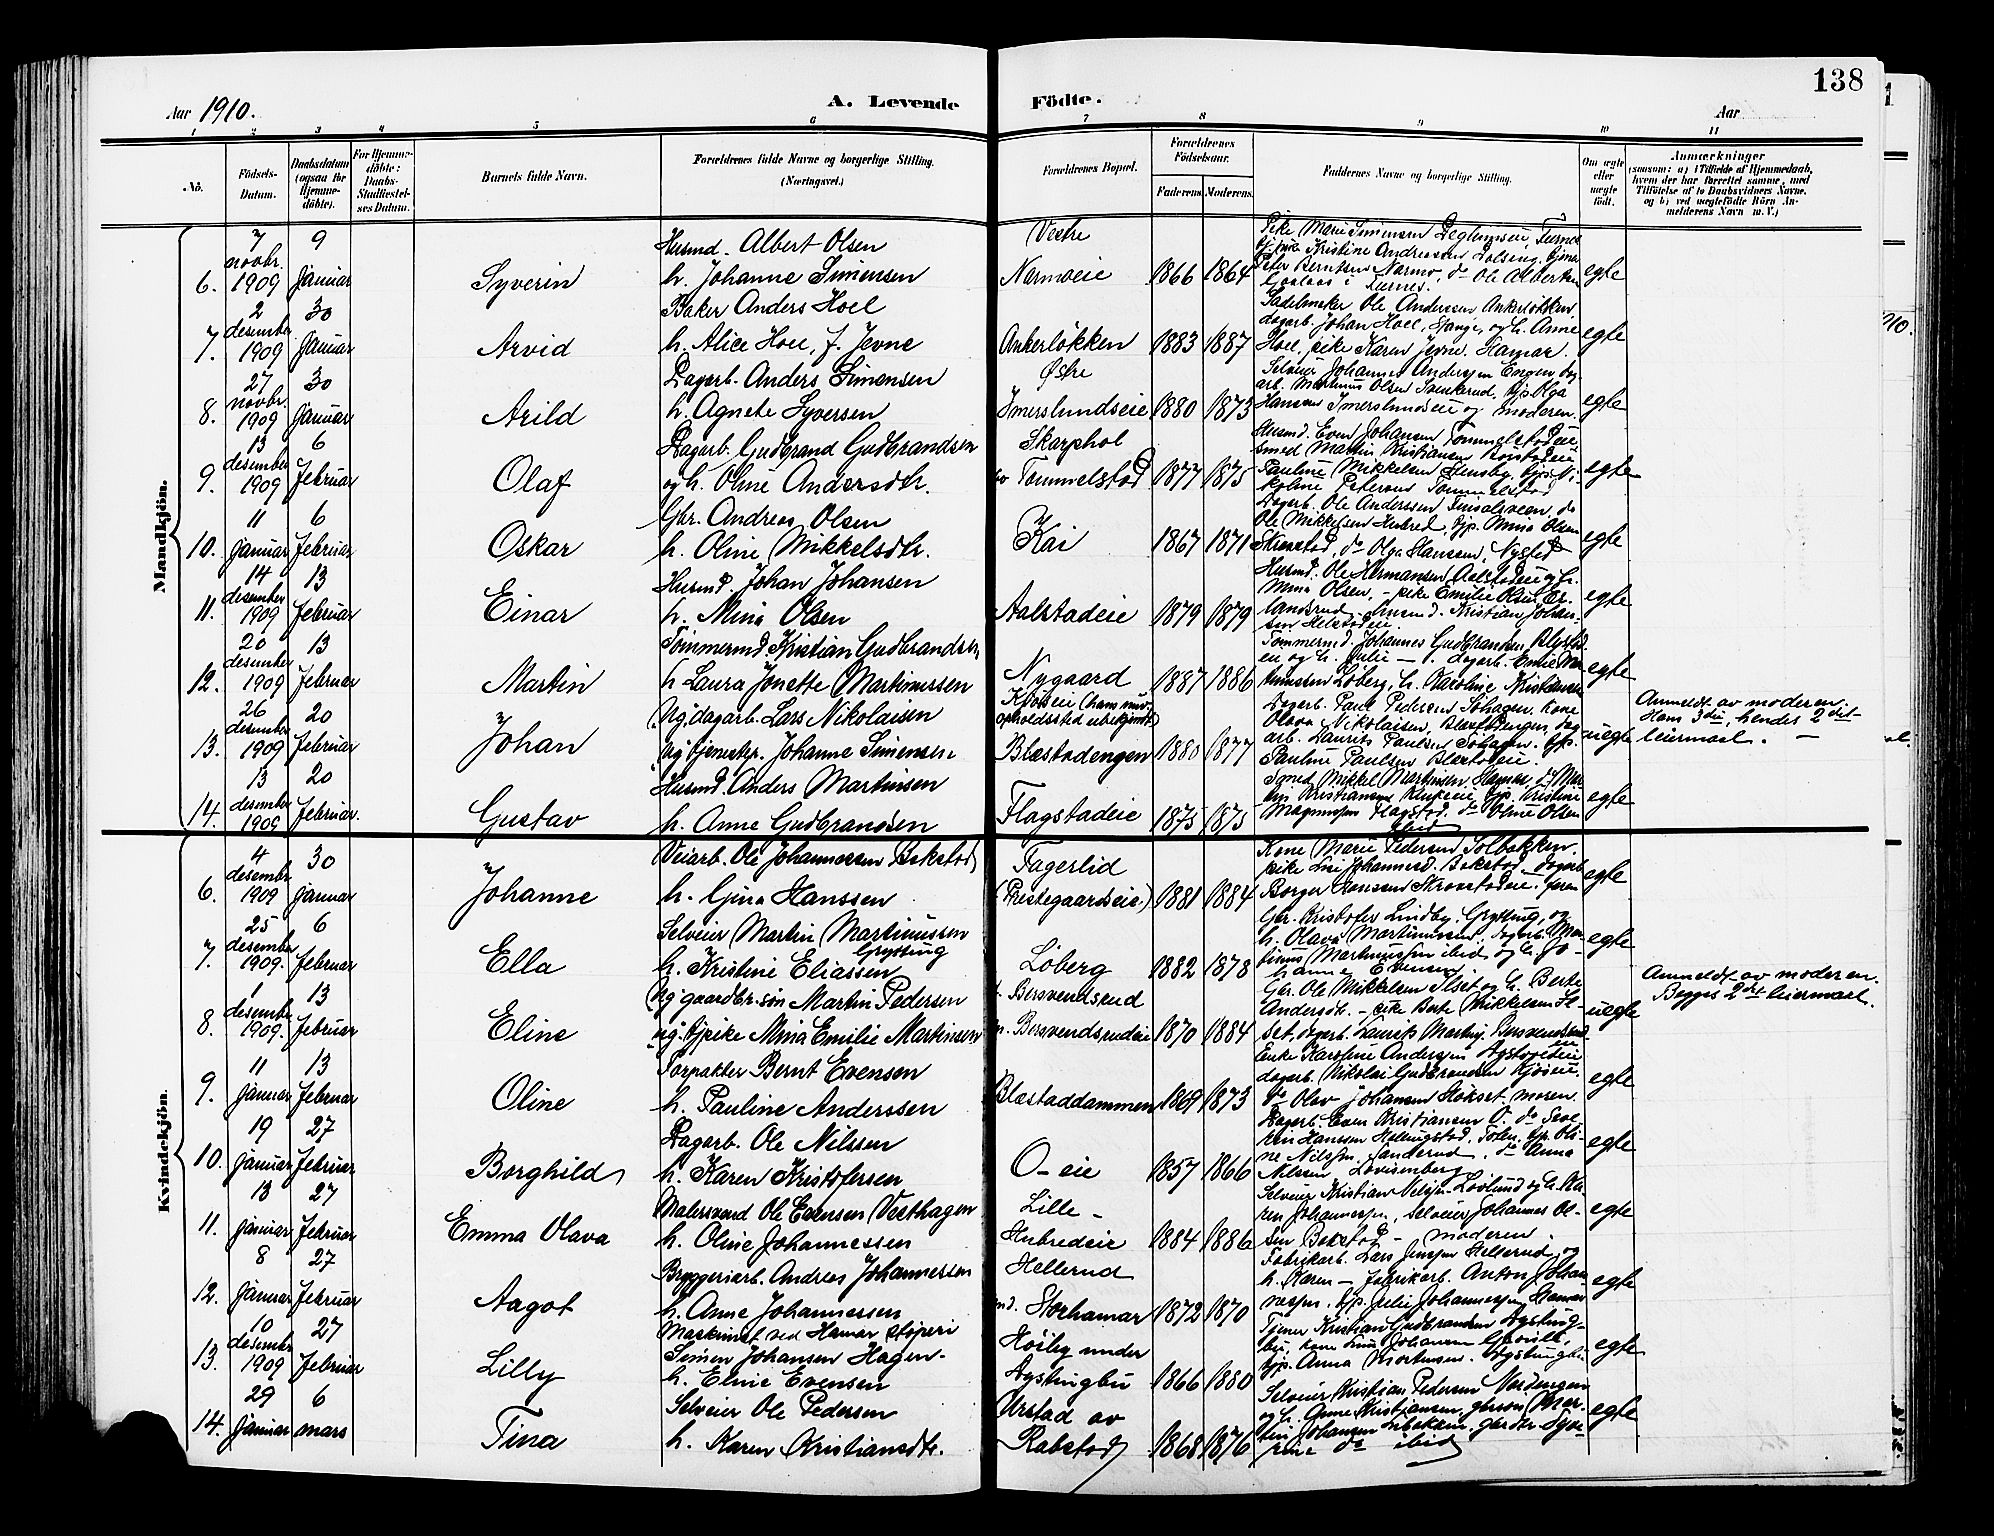 138
Aar 1910.
A. Levende
Födte.
Aar
1 2 3 4 5 6 7 8 9 10 11
No.
Födsels-Datum.
Daabsdatum (ogsaa for Hjemme-döbte).
For Hjemme-döbte: Daabs-Stadfæstel-ses Datum.
Barnets fulde Navn.
Forældrenes fulde Navne og borgerlige Stilling. (Næringsvei.)
Forældrenes Bopæl.
Forældrenes Födselsaar.
Faderens. Moderens.
Faddernes Navne og borgerlige Stilling.
Om ægte eller uægte födt.
Anmærkninger
(saasom: a) i Tilfælde af Hjemmedaab, hvem der har forrettet samme, med Tilföielse af to Daabsvidners Navne, og b) ved uægtefödte Börn An-melderens Navn m. V.)
Mandkjön.
6. 7 novbr. 1909 9 januar Syverin Husmd. Albert Olsen
h. Johanne Simensen Vestre Narmoeie 1866 1864 egte
7. 2 desember 1909 30 januar Arvid Baker Anders Hoel
h. Alice Hoel, f. Jevne Ankerløkken 1883 1887 Sadelmaker Ole Andersen Ankerløkken,
dagarb. Johan Hoel, Stange, og h. Anne
Hoel, pike Karen Jevne. Hamar. egte
8. 27 novbr. 1909 30 januar Arild Dagarb. Anders Simensen
h. Agnete Syversen Østre Imerslundseie 1880 1873 Selveier Johannes Andersen Engen dag
arb. Martinus Olsen
Hansen Imerslundseie og moderen. egte
9. 13 desember 1909 6 februar Olaf Dagarb. Gudbrand Gudbrandsen
og h. Oline Andersdtr. Skarphol av Tommelstad 1877 1875 Husmd. Even Johansen Tommelstadeie
smed Martin Kristiansen
Pauline Mikkelsen egte
10. 11 januar 6 februar Oskar Gbr. Andreas Olsen
h. Oline Mikkelsdtr. Kai 1867 1871 Dagarb. Ole Anderssen
Ole Mikkelsen Hubred, tjp. Mina Olsen
Skrøvstad, do Olga Hanssen, Nysted egte
11. 14 desember 1909 13 februar Einar Husmd. Johan Johansen
h. Mina Olsen Aalstadeie 1879 1879 Husmd. Ole Hermansen Aalstadeie og h.
Mina Olsen, - pike Emilie Olsen
husmd. Kristian Johan-
sen egte
12. 20 desember 1909 13 februar Martin Tømmermd. Kristian Gudbrandsen
h. Laura Jonette Martinussen Nygaard 1887 1886 Tømmermd. Johannes Gudbrandsen
og h. Julie - dagarb. Emil Mar-
tinussen Løberg, h. Karoline Kristiansen egte
13. 26 desember 1909 20 februar Johan Ug. dagarb. Lars Nikolaisen
ug. tjenestep. Johanne Simensen (hans nuv. opholdssted ubekjendt) Blæstadengen 1880 1877 Dagarb. Paul Pedersen Sohagen, kone
Olava Nikolaisen, dag
arb. Laurits Paulsen Sohagen. tjp.
Pauline Paulsen Blæstadeie. uegte Anmeldt av moderen.
Hans 3die, hendes 2det
leiermaal.
14. 13 desember 1909 20 februar. Gustav Husmd. Anders Martinsen
h. Anne Gudbrandsen Flagstadeie 1875 1875 Smed Mikkel Martinsen Hamar, do Mar-
tin Kristiansen tjp. Kristine
Magnussen Flagstad. do Oline Olsen
ibid egte
Kvindekjön.
6. 4 desembr. 1909 30 januar Johanne Veiarb. Ole Johannessen Bekstad
h. Gina Hanssen Fagerlid (Prestegaardseie) 1881 1884 Kone Marie Pedersen Solbakken.
pike Lise Johannesd. Bekstad. dagarb
Borger Hanssen Skrøvstadeie. faren egte
7. 25 desember 1909. 6 februar Ella Selveier Martin Martinussen Gryttung
h. Kristine Eliassen Løberg 1882 1878 Gbr. Kristofer Lindby, Gryttung, og
h. Olava Martinussen. dagarb. Mar-
tinus Martinussen ibid, og h. Jo-
hanne Evensen egte
8. 1 desember 1909. 13 februar Eline Ug. gaardbr.søn Martin Pedersen
ug. tj.pike Mina Emilie Martinsen Bersvendsrud Bersvendsrudeie 1870 1884 Gbr. Ole Mikkelsen Ilset og h. Berte
Andersdtr. - pike Berte Mikkelsen Il-
set, dagarb. Laurits Martins. Bersvendsrud. uegte Anmeldt av moderen.
Begges 2det leiermaal.
9. 11 januar 13 februar Oline Forpakter Bernt Evensen
h. Pauline Anderssen Blæstaddammen 1869 1873 Enke Karoline Anderssen
dagarb. Nikolai Gudbrandsen
do Olav Johansen Høkset. moren. egte
10. 19 januar 27 februar Borghild Dagarb. Ole Nilssen
h. Karen Kristofersen O-eie 1857 1866 Dagarb. Even Kristiansen O. do
Hanssen Hellingstad, tjp. Oli-
ne Nilssen, Sanderud. do Anna
Nilssen Lovisenberg egte
11. 13 januar 27 februar Emma Olava Malersvend Ole Evensen Vesthagen
h. Oline Johannessen Lille-Hubredeie 1884 1886 Selveier Kristian Nilssen Lovlund og h. Ka-
ren Johannessen, selveier Johannes Ol-
sen Bekstad - moderen. egte
12. 8 januar 27 februar Aagot Bryggeriarb. Andreas Johannessen
h. Anne Johannessen Hellerud nd. Storhamar 1872 1870 Fabrikarb. Lars Jenssen Hellerud, og
h. Karen - fabrikarb. Anton Johan-
nessen. tjp. Julie Johannessen Hamar egte
13. 10 desembr. 1909 27 februar Lilly Maskinist ved Hamar støperi
Simen Johansen Hagen.
h. Eline Evensen Høiby under Aystingbu 1866 1880 Tjener Kristian Gudbrandsen
tjp. Anna Mortensen. egte
14. 29 januar 6 mars Tina Selveier Ole Pedersen
h. Karen Kristiansdtr. Urstad av Rabstad 1868 1876 Selveier Kristian Pedersen Nordengen
og h. Anne Kristiansen, gbrsøn Mar-
tin Johansen gbrdtr. Syve-
rine do ibid egte